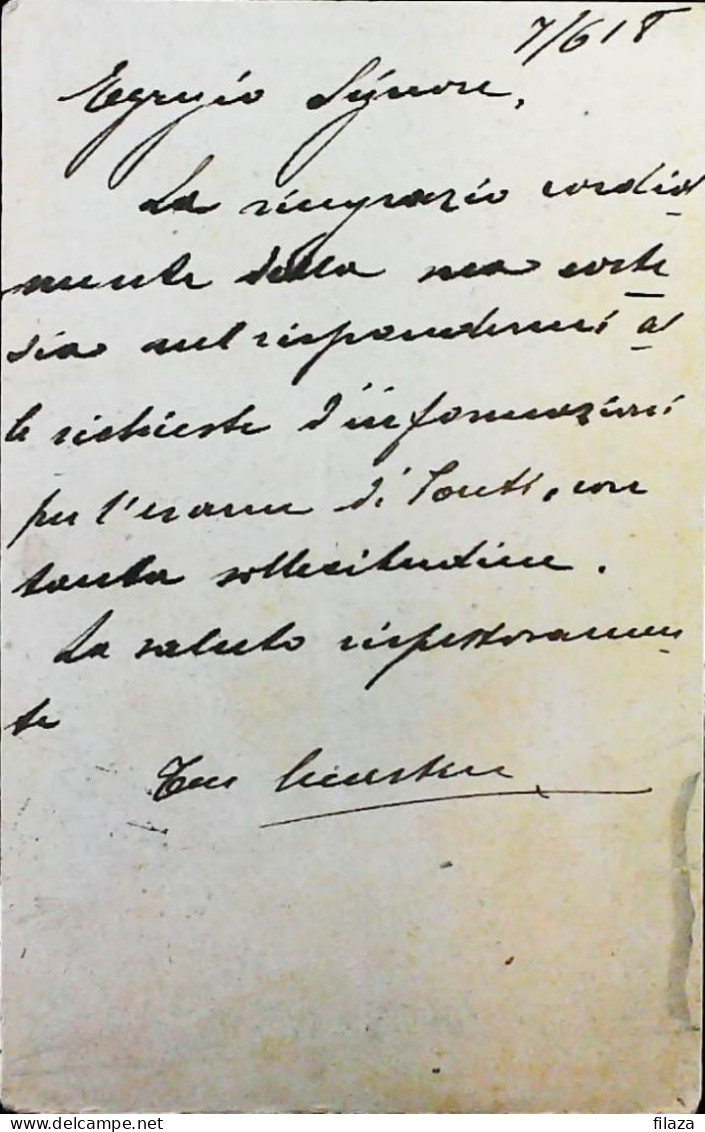 7/6 18
Egregio Signore,
La ringrazio cordial
mente della sua corte
sia nel rispondermi al
le richieste d'informazioni
per l'esame di Ponti, con
tanta sollecitudine.
La saluto rispettosamen
te
delcampe.net
filaza